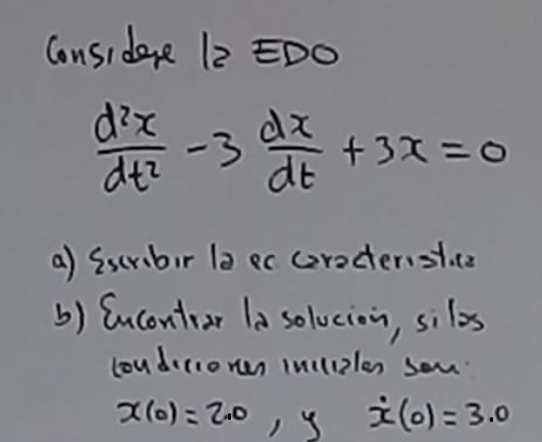 Considere la EDO
d²x/dt² - 3 dx/dt + 3x = 0
a) Escribir la ec caracteristica
b) Encontrar la solución, si las
condiciones iniciales son:
x(0) = 2.0 , y ẋ(0) = 3.0